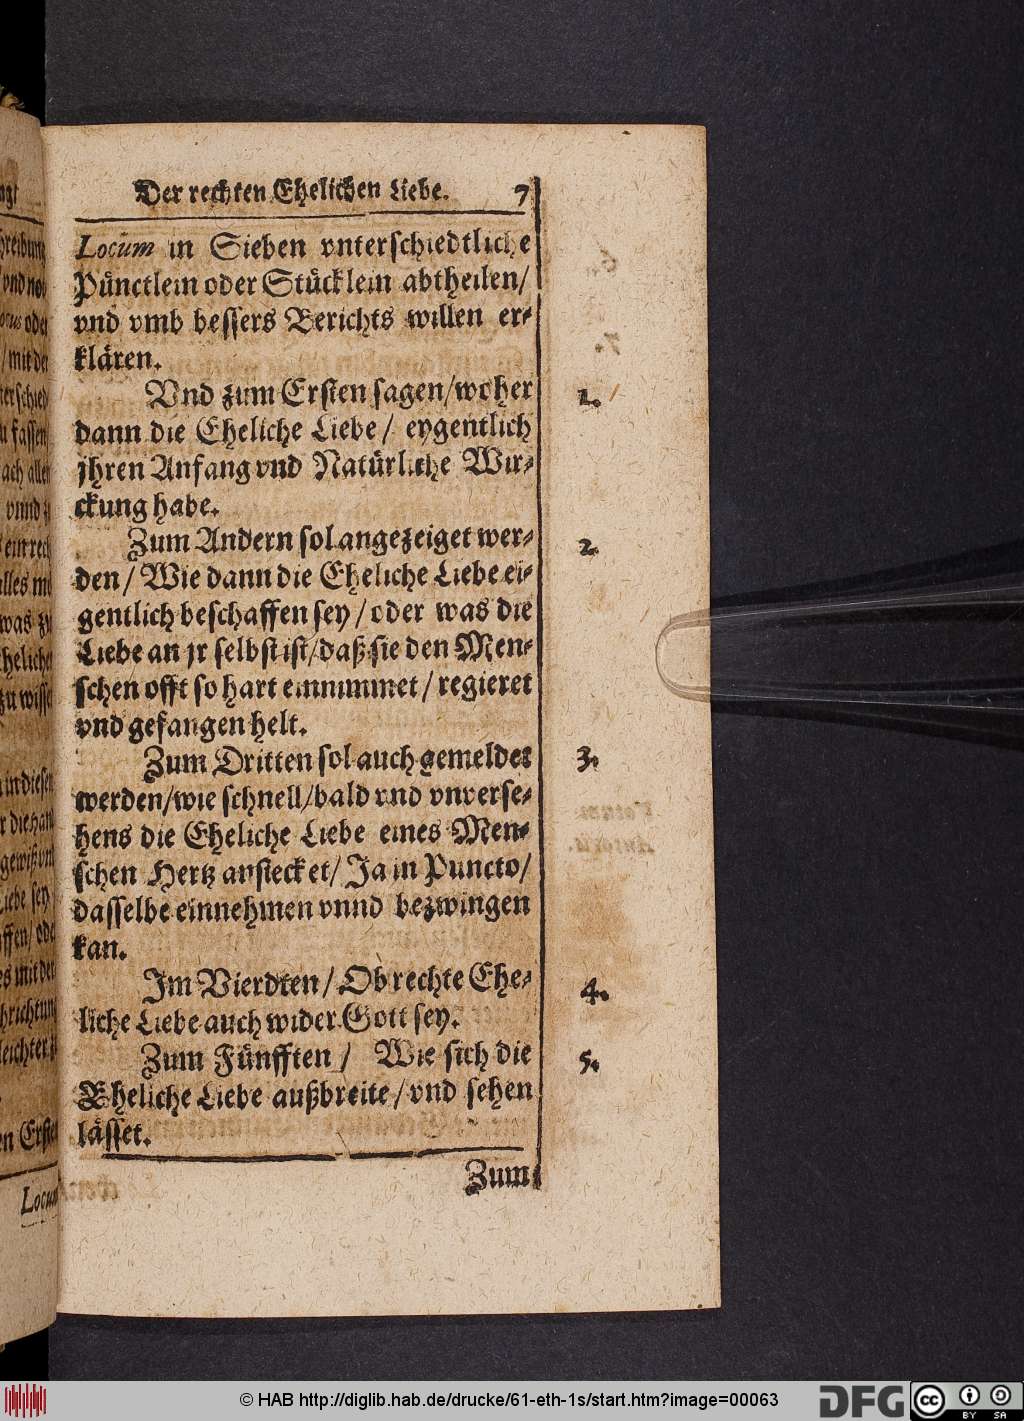 Der rechten Ehelichen Liebe. 7
Locum in Sieben vnterschiedtliche
Pünctlein oder Stücklein abtheilen/
vnd vmb bessers Berichts willen er-
klären.
Vnd zum Ersten sagen/woher 1.
dann die Eheliche Liebe/ eygentlich
jhren Anfang vnd Natürliche Wir-
ckung habe.
Zum Andern sol angezeiget wer- 2.
den/ Wie dann die Eheliche Liebe ei-
gentlich beschaffen sey/ oder was die
Liebe an jr selbst ist/daß sie den Men-
schen offt so hart einnimmet/ regieret
vnd gefangen helt.
Zum Dritten sol auch gemeldet 3.
werden/wie schnell/bald vnd vnverse-
hens die Eheliche Liebe eines Men-
schen Hertz anstecket/ Ja in Puncto/
dasselbe einnehmen vnnd bezwingen
kan.
Im Vierdten/ Ob rechte Ehe- 4.
liche Liebe auch wider Gott sey.
Zum Fünfften/ Wie sich die 5.
Eheliche Liebe außbreite/ vnd sehen
lässet.
Zum
© HAB http://diglib.hab.de/drucke/61-eth-1s/start.htm?image=00063
DFG
cc
BY SA